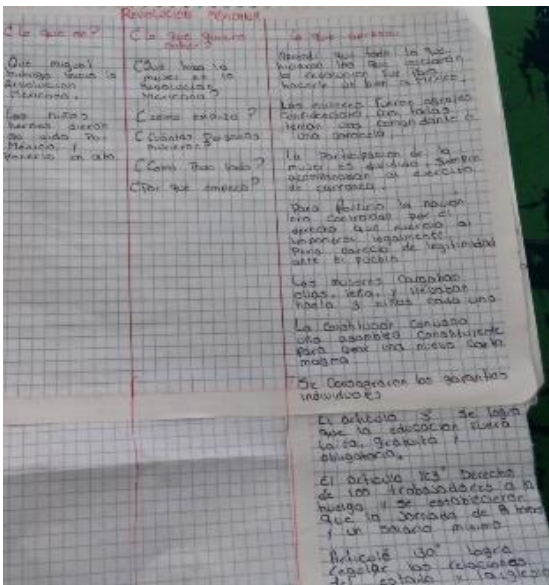 Revolución Mexicana
¿Lo que se?
Que miguel
hidalgo inicio la
Revolución
Mexicana.
Los niños
heroes dieron
su vida por
México y
ponerlo en alto.
¿Lo que quiero
saber?
¿Que hizo la
mujer en la
Revolución
Mexicana?
¿Como empezo?
¿Cuántas Personas
murieron?
¿Como Paso todo?
¿Por que empezo?
¿Lo que aprendi?
Aprendi que todo lo que
hicieron los que iniciaron
la revolución fue para
hacerle un bien a México.
Las mujeres fueron
consideradas
tenian una comandante o
una coronela.
La Participación de la
mujer es siempre
acompañaban al ejercito
de carranza.
Para la nación
era controlada por el
ejercito que
legalmente
Pero carecio de legitimidad
ante el pueblo
Las mujeres cargaban
ollas, leña, y llevaban
hasta 3 niños cada uno
La Constitución Convoco
una asamblea Constituyente
Para crear una nueva Carta
magna
Se Consagraron las garantias
individuales
El articulo 3° se logro
que la educación fuera
laica, gratuita y
obligatoria.
El articulo 123° Derecho
de los trabajadores a la
huelga y se establecieron
que la jornada de 8 horas
y un salario minimo
Articulo 130° logro
regular las relaciones
del estado la iglesia